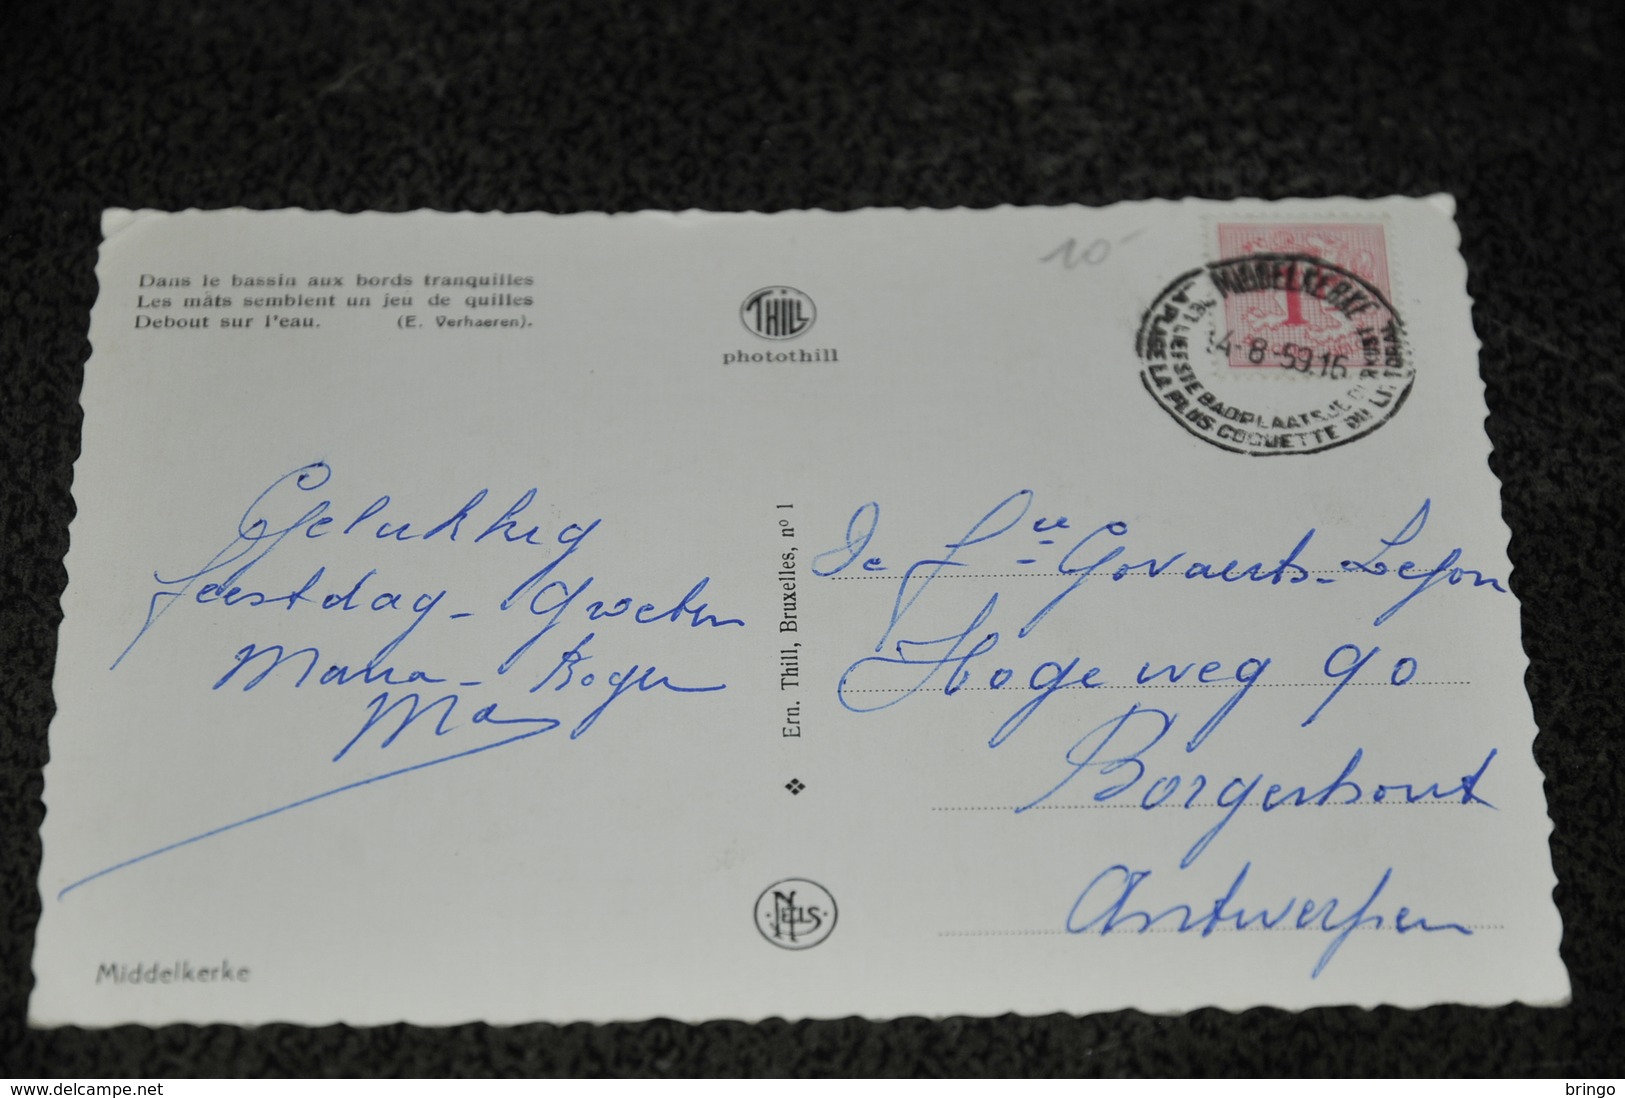 Dans le bassin aux bords tranquilles
Les mâts semblent un jeu de quilles
Debout sur l'eau. (E. Verhaeren).
THILL
photothill
10-
MIDDELKERKE
1
4-8-59.16
HET LIEFSTE BADPLAATSJE DER KUST
LA PLAGE LA PLUS COQUETTE DU LITTORAL
Gelukkig
feestdag - Groeten
Maria - Roger
Ern. Thill, Bruxelles, nº 1
De Govaerts-Lejon
Hogeweg 90
Borgerhout
Antwerpen
NELS
Middelkerke
www.delcampe.net
bringo